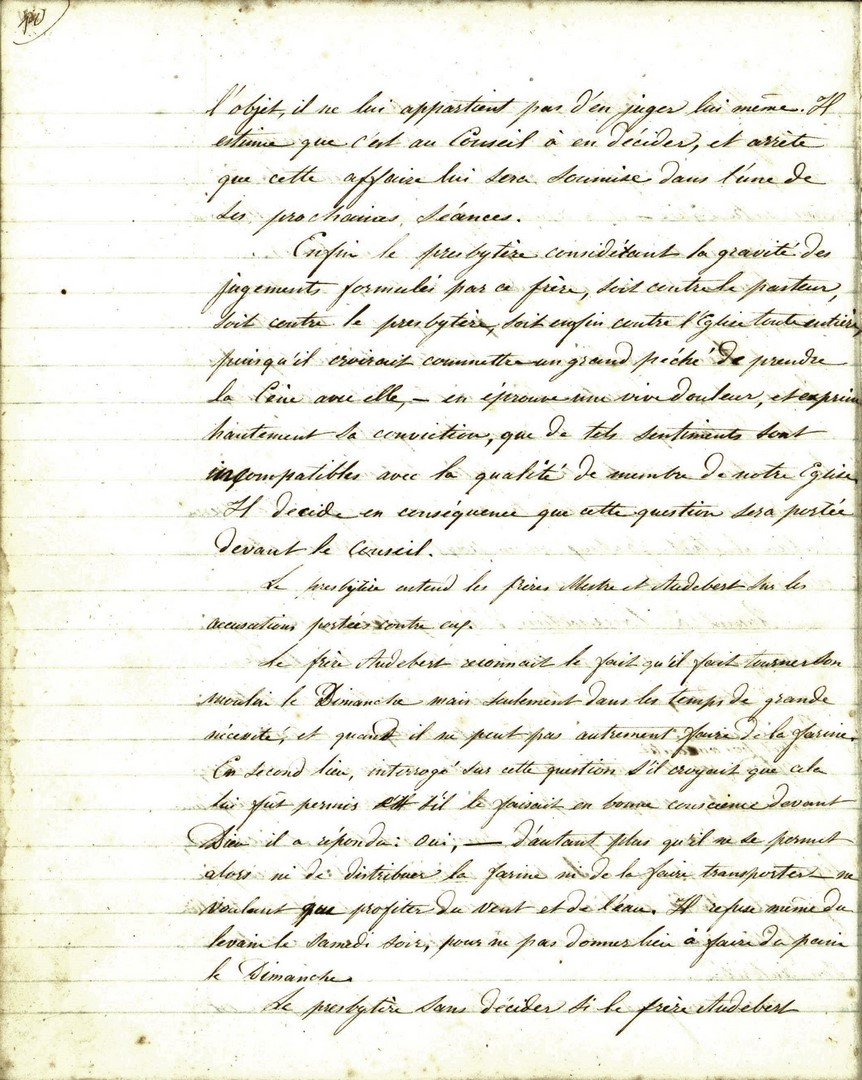 l'objet, il ne lui appartient pas d'en juger lui même. Il
estime que c'est au Conseil à en décider, et arrête
que cette affaire lui sera soumise dans l'une de
ses prochaines séances.
Enfin le presbytère considérant la gravité des
jugements formulés par ce frère, soit contre le pasteur,
soit contre le presbytère, soit enfin contre l'Eglise toute entière,
puisqu'il croirait commettre un grand péché de prendre
la Cène avec elle, — en éprouve une vive douleur, et exprime
hautement sa conviction, que de tels sentiments sont
incompatibles avec la qualité de membre de notre Eglise
Il décide en conséquence que cette question sera portée
devant le Conseil.
Le presbytère entend les frères Mestre et Audebert sur les
accusations portées contre eux.
Le frère Audebert reconnait le fait qu'il fait tourner son
moulin le Dimanche mais seulement dans les temps de grande
nécevité, et quand il ne peut pas autrement faire de la farine.
En second lieu, interrogé sur cette question s'il croyait que cela
lui fût permis et s'il le faisait en bonne conscience devant
Dieu il a répondu: oui, — d'autant plus qu'il ne se permet
alors ni de distribuer la farine ni de la faire transporter — ne
voulant que profiter du vent et de l'eau. Il refuse même du
levain le samedi soir, pour ne pas donner lieu à faire du pain
le Dimanche.
Le presbytère sans décider si le frère Audebert